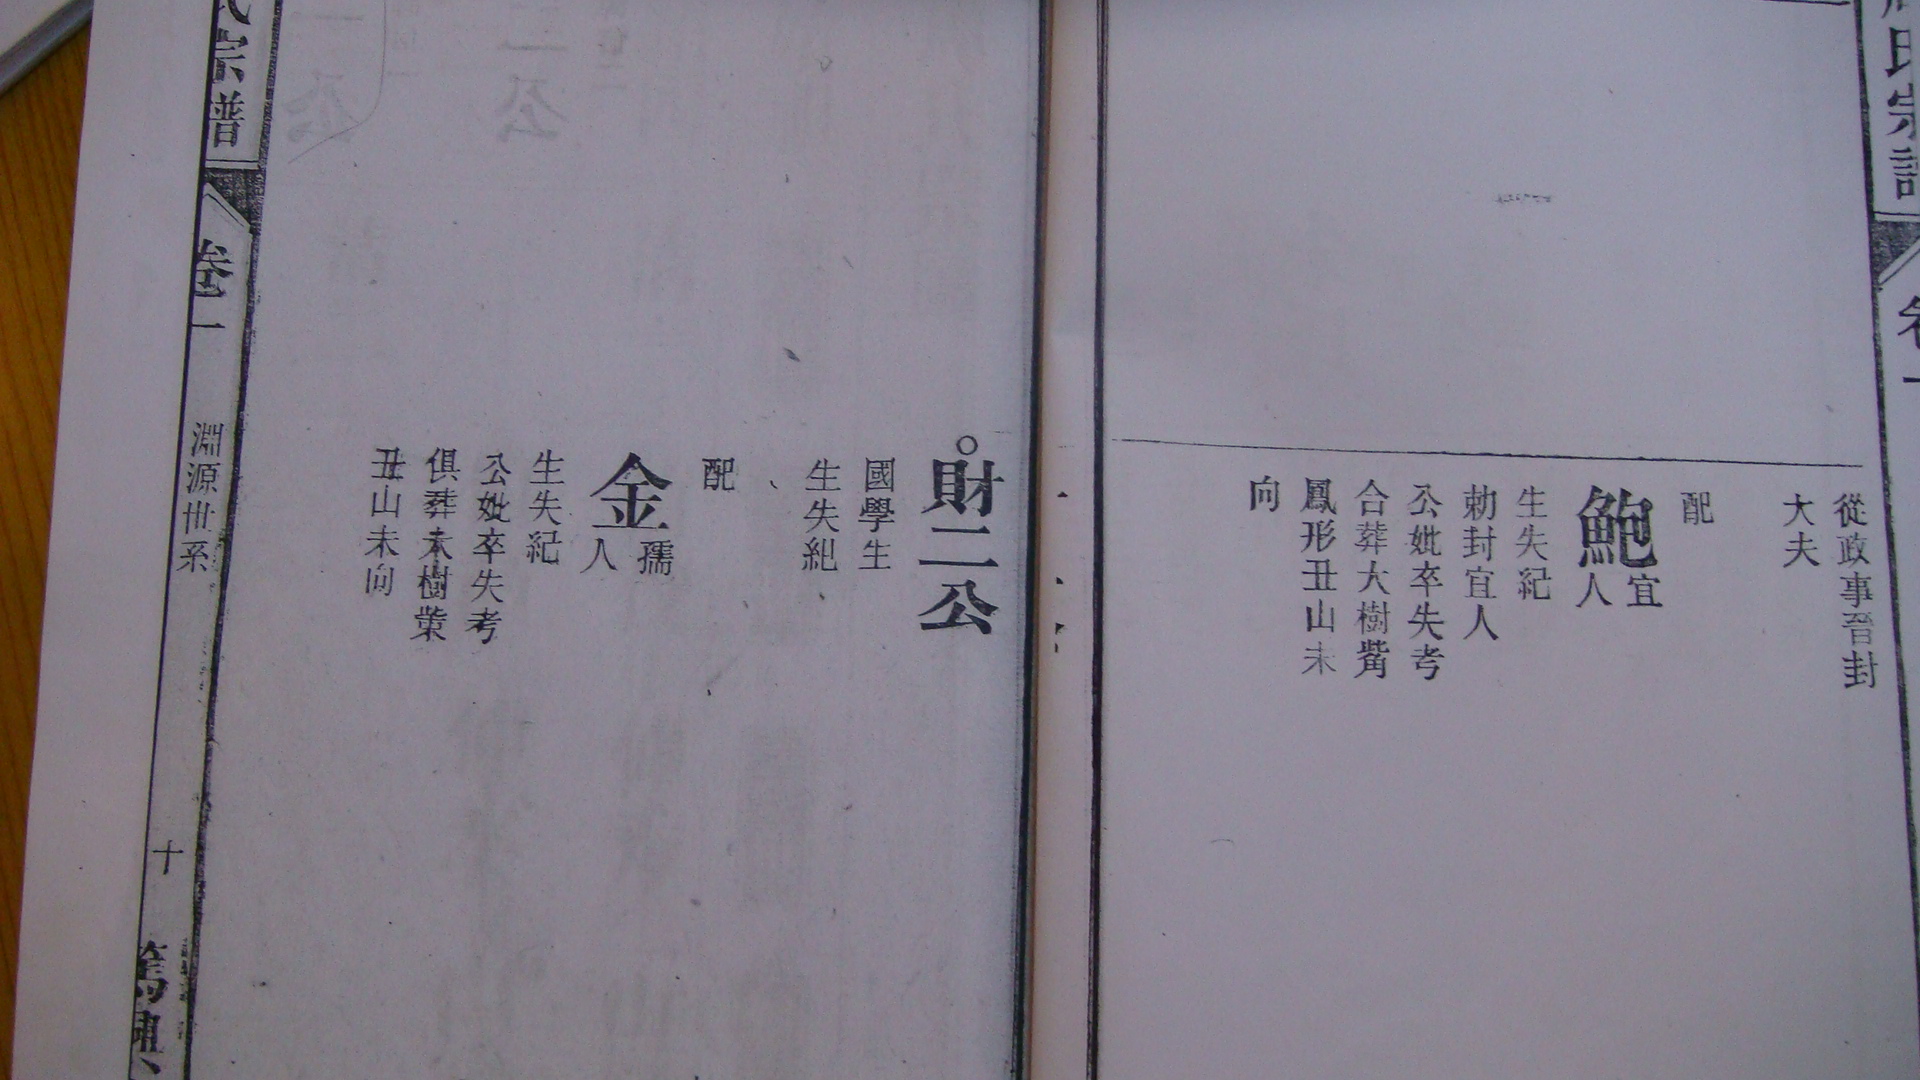 氏宗譜
卷一
從政事晉封
大夫
配
鮑宜人
生失紀
勅封宜人
公妣卒失考
合葬大樹觜
鳳形丑山未
向
財二公
國學生
生失紀
配
金孺人
生失紀
公妣卒失考
俱葬大樹
丑山未向
氏宗譜
卷一
淵源世系
十